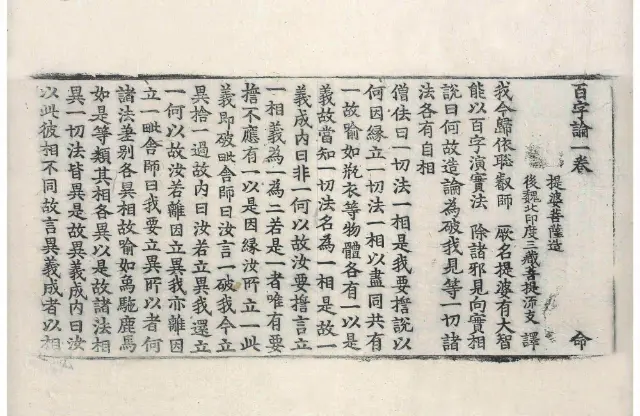 百字論一卷 命
提婆菩薩造
後魏北印度三藏菩提流支 譯
我今歸依聡叡師 厥名提婆有大智
能以百字演實法 除諸邪見向實相
說曰何故造論為破我見等一切諸
法各有自相
僧佉曰一切法一相是我要擔說以
何因緣立一切法一相以盡同共有
一故喻如瓶衣等物體各有一以是
義故當知一切法名為一相是故一
義成內曰非一何以故汝要擔言立
一相義為一為二若是一者唯有要
擔不應有一以是因緣汝所立一此
義即破毗舍師曰汝言一破我今立
異捨一過故內曰汝若立異我還立
一何以故汝若離因立異我亦離因
立一毗舍師曰我要立異所以者何
諸法差別各異相故喻如象駞鹿馬
如是等類其相各異以是故諸法相
異一切法皆異是故異義成內曰汝
以此彼相不同故言異義成者以相